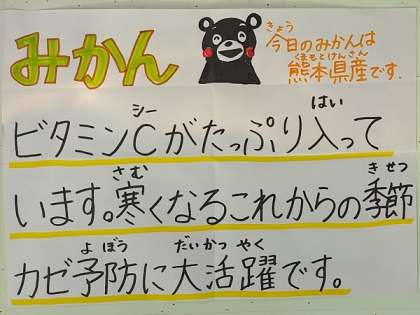 みかん
きょう
今日のみかんは
くまもとけんさん
熊本県産です.
シー はい
ビタミンCがたっぷり入って
さむ きせつ
います。寒くなるこれからの季節
よぼう だいかつやく
カゼ予防に大活躍です。